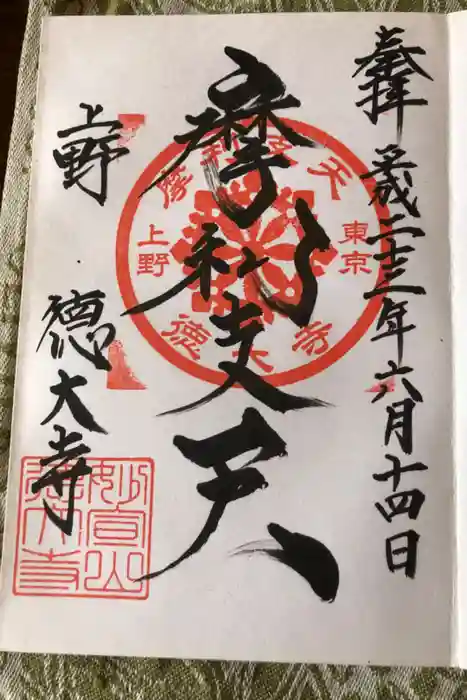 奉拝 平成二十三年六月十四日
摩利支天
上野 徳大寺
摩利支天
東京
上野
徳大寺
妙宣山
徳大寺